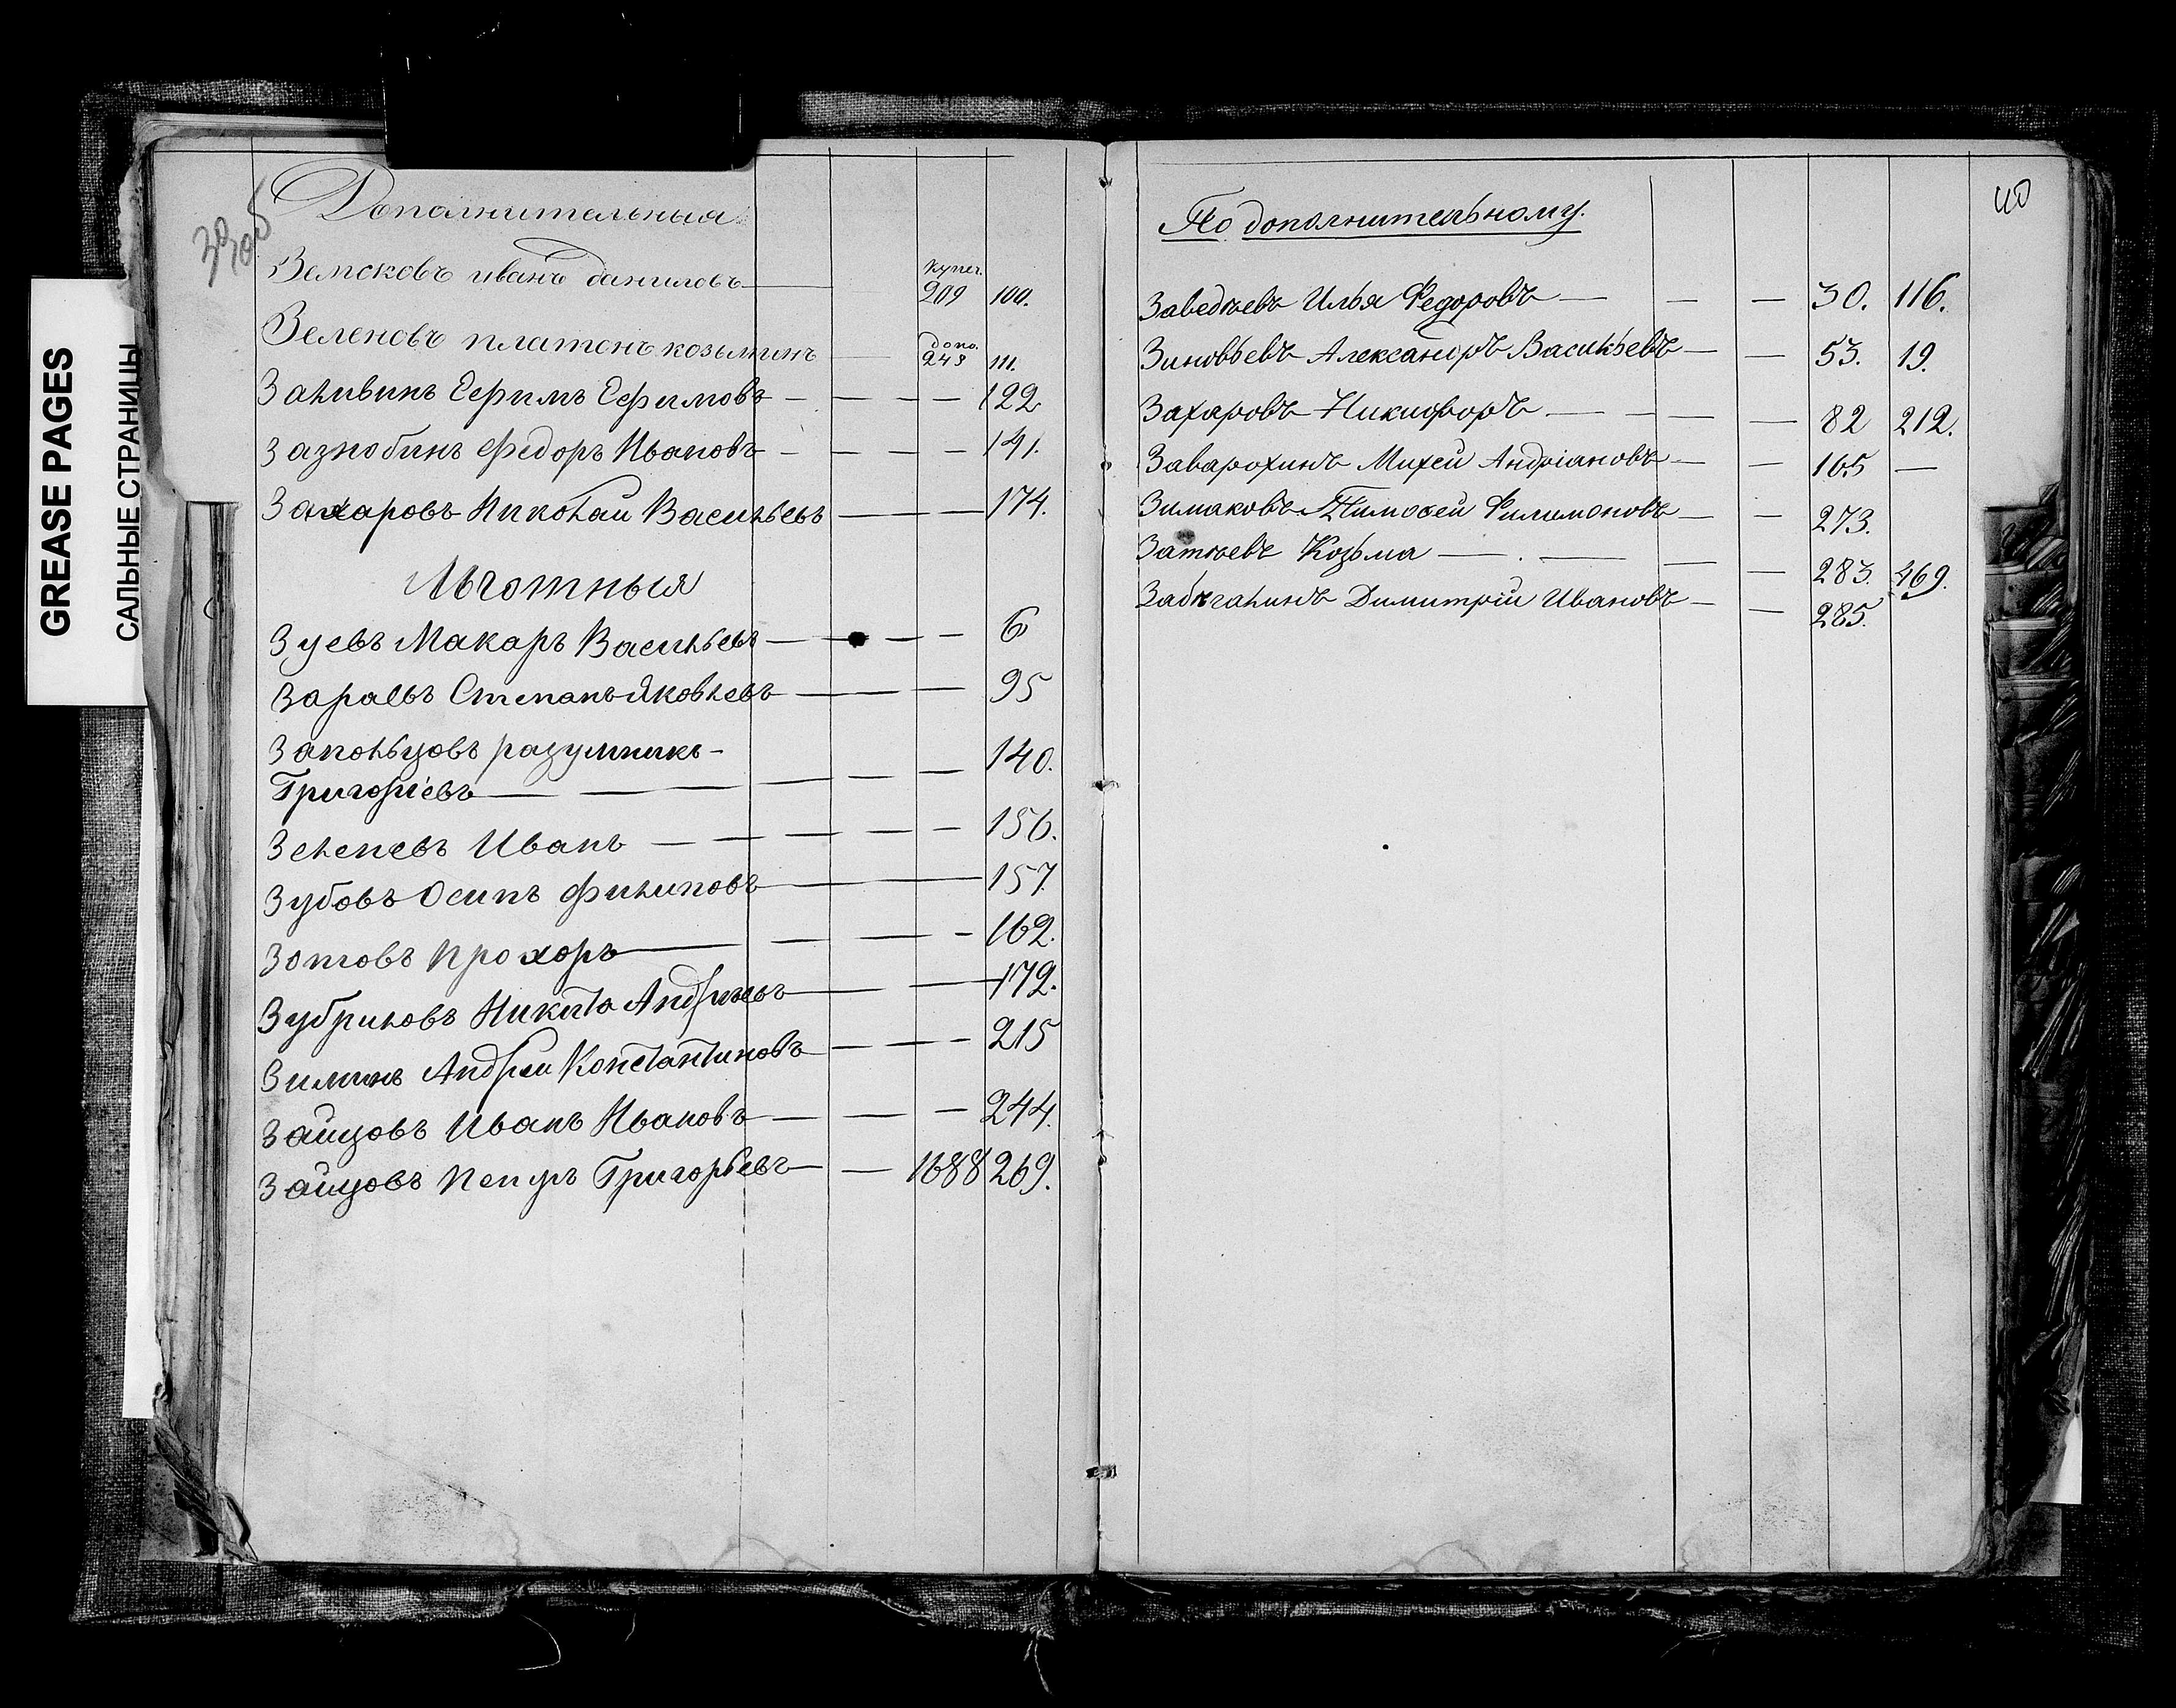 GREASE PAGES
САЛЬНЫЕ СТРАНИЦЫ
39об
Дополнительныя
Земсковъ иванъ даниловъ купеч. 209 100.
Зеленовъ платонъ козьминъ допо. 248 111.
Заливинъ Ефимъ Ефимовъ — — — — 122
Зазнобинъ Федоръ Ивановъ — — — — 141.
Захаровъ Николай Васильевъ — — — 174.
Льготныя
Зуевъ Макаръ Васильевъ — — — — 6
Зараевъ Степанъ Яковлевъ — — — 95
Запольцовъ разумникъ -
Григорьевъ — — — — — 140.
Зеленевъ Иванъ — — — — — 156.
Зубовъ Осипъ Филиповъ — — — 157
Зотовъ Прохоръ — — — — 162.
Зубриловъ Никита Андреевъ — — 172.
Зиминъ Андрей Константиновъ — — — 215
Зайцовъ Иванъ Ивановъ — — — 244.
Зайцовъ Петръ Григорьевъ — — 1688 269.
40
По дополнительному.
Заведѣевъ Илья Федоровъ — — — 30. 116.
Зиновьевъ Александръ Васильевъ — — 53. 19.
Захаровъ Никифоръ — — — 82 212.
Заварохинъ Михей Андріановъ — — 165 —
Зимаковъ Тимофей Филимоновъ — — 273.
Затѣевъ Козьма — — — — 283. 469.
Забѣгалинъ Димитрій Ивановъ — — 285.